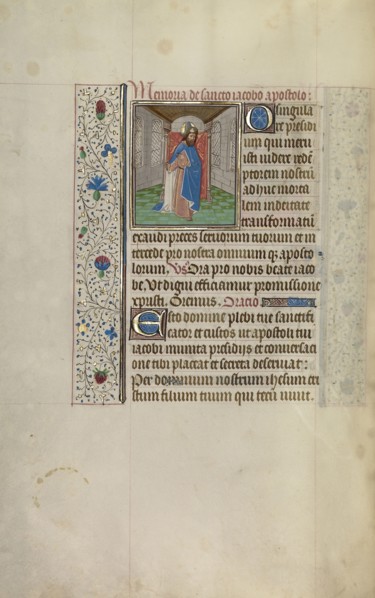 Memoria de sancto iacobo apostolo:
O singula
re presidi
um qui meru
isti videre redē
ptorem nostrū
adhuc morta
lem in deitate
transformatū
exaudi preces seruorum tuorum et in
tercede pro nostra omnium qꝫ aposto
lorum. Vs Ora pro nobis beate iaco
be. Vt digni efficiamur promissione
xpristi. Oremus. Oracio
Esto domine plebi tue sanctifi
cator et custos ut apostoli tui
iacobi munita presidijs et conuersaci
one tibi placeat et secreta deseruat:
Per dominum nostrum ihesum cri
stum filium tuum qui tecū viuit.